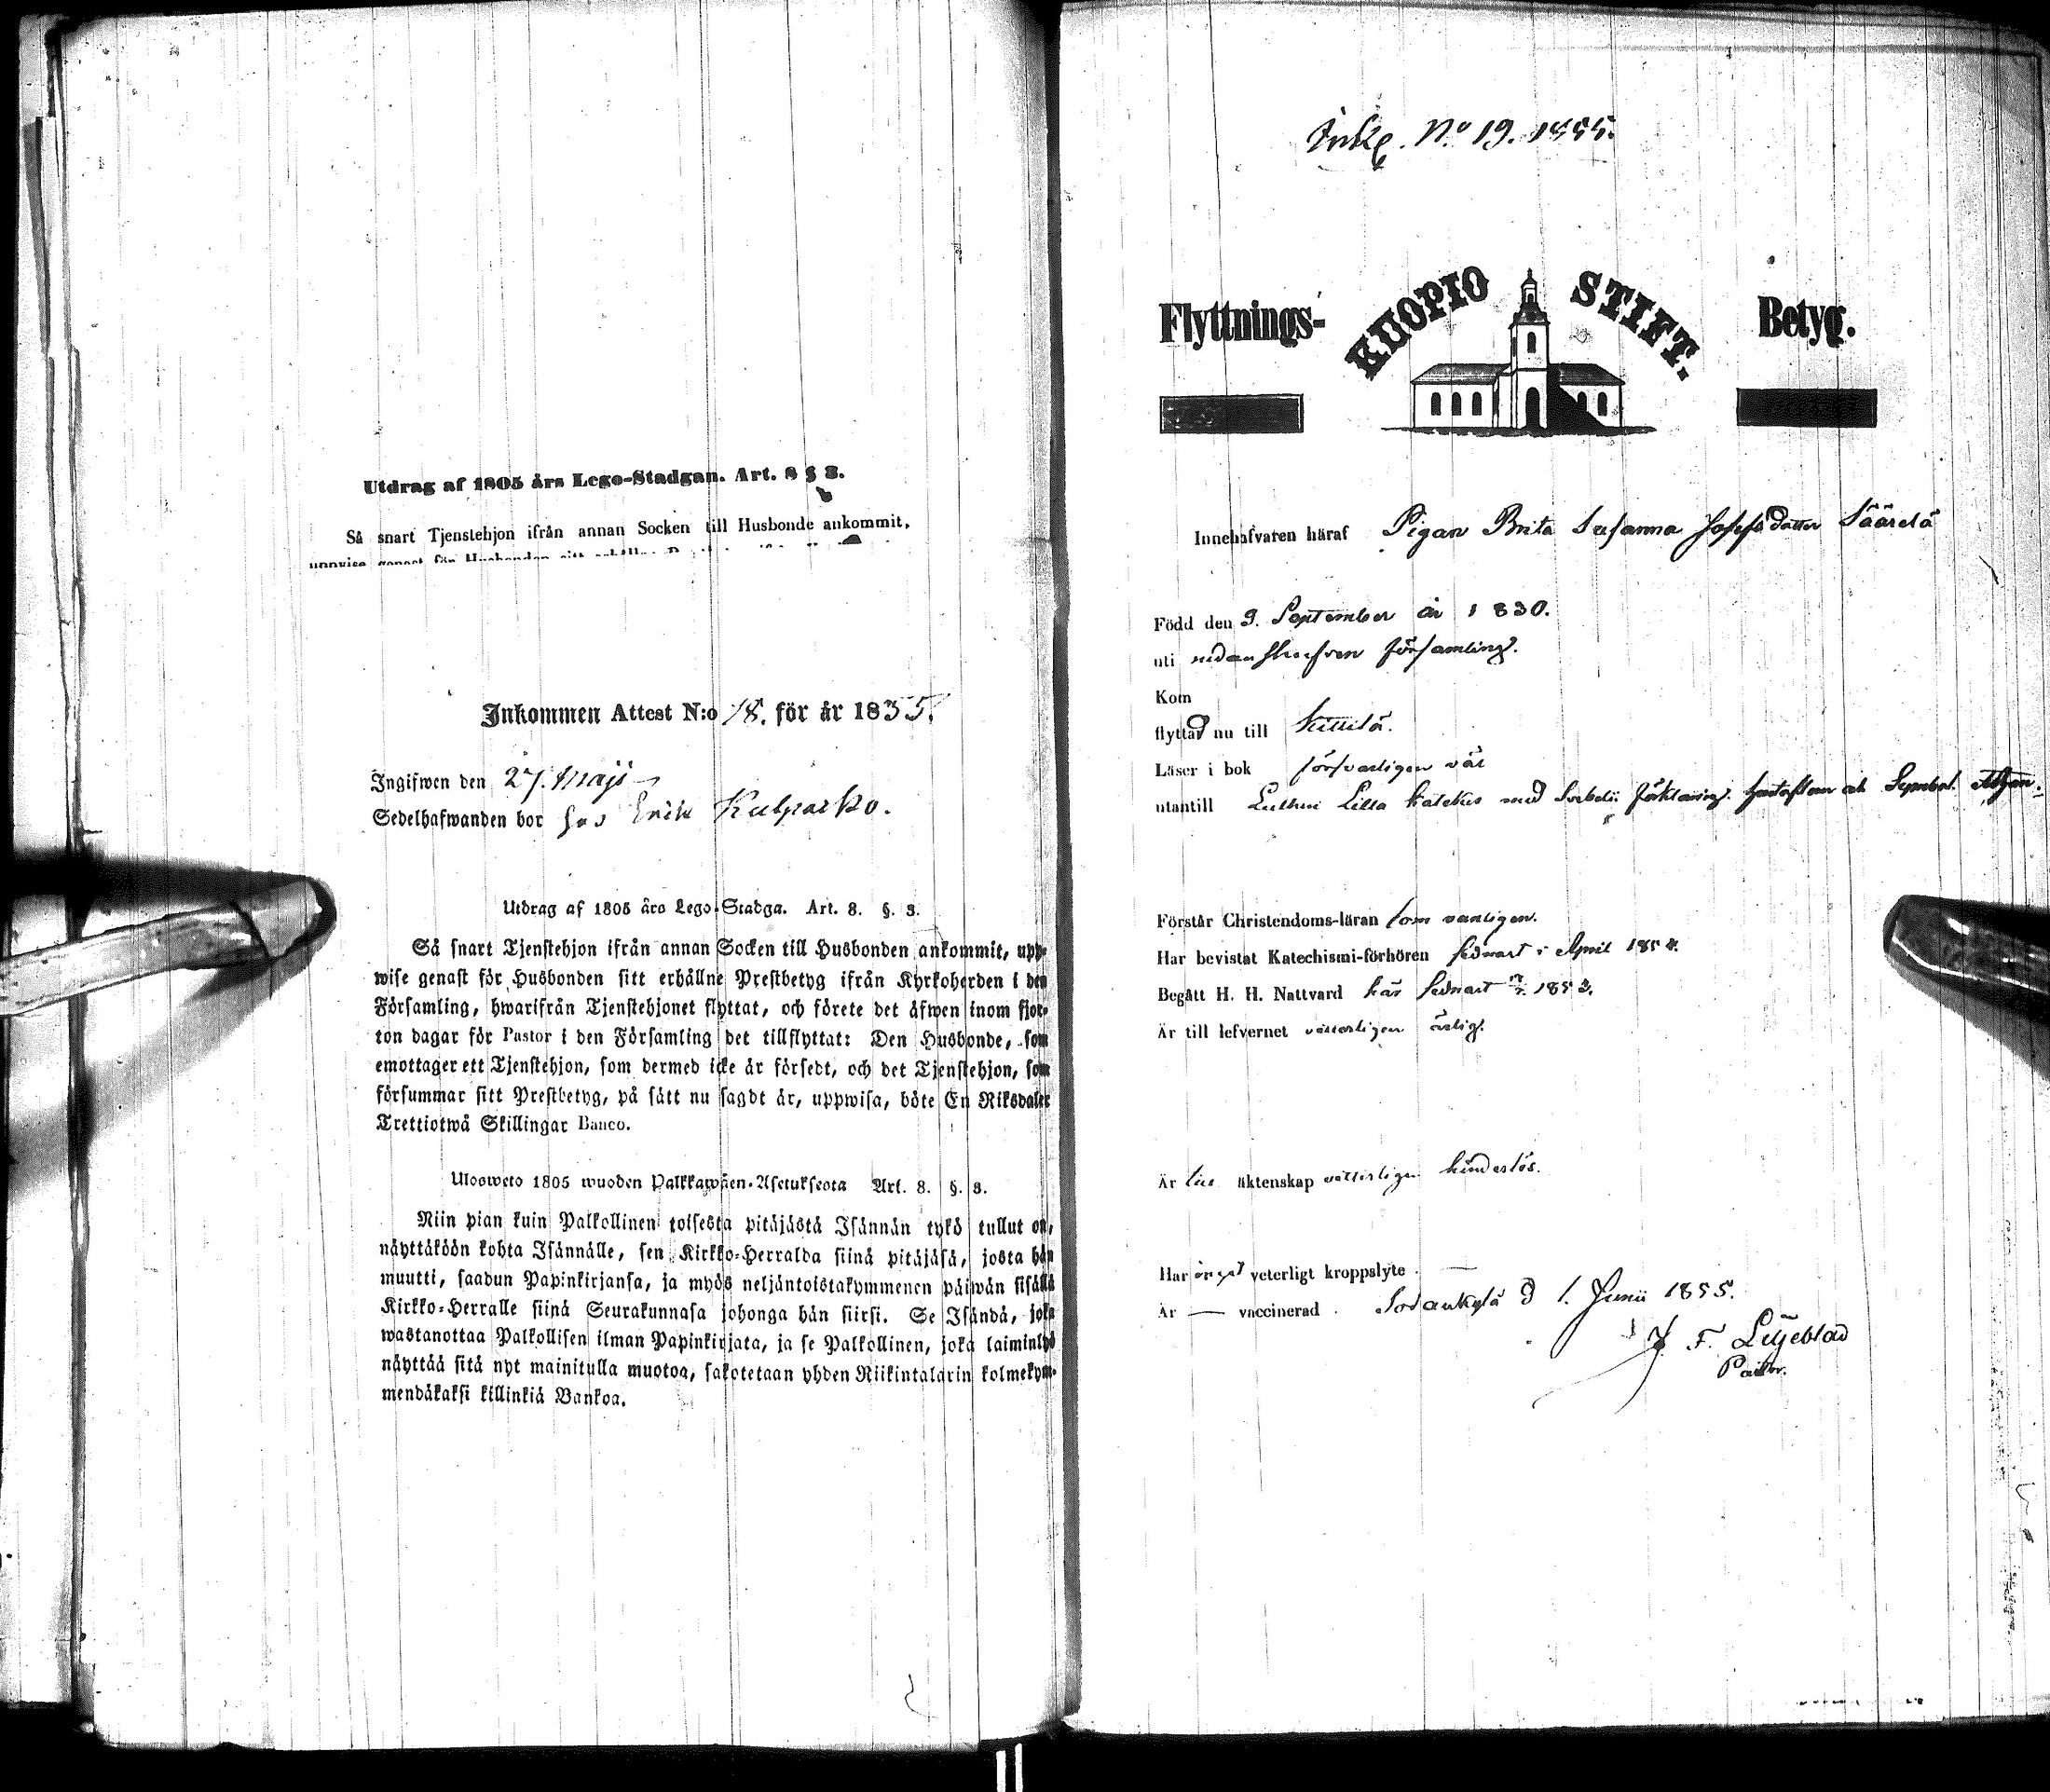 Utdrag af 1805 års Lego-Stadgan. Art. 8 § 3.
Så snart Tjenstehjon ifrån annan Socken till Husbonde ankommit,
Inkommen Attest N:o 18. för år 1855.
Ingifwen den 27. Maji
Sedelhafwanden bor hos Erik
Utdrag af 1805 års Lego-Stadga. Art. 8. §. 3.
Så snart Tjenstehjon ifrån annan Socken till Husbonden ankommit, upp-
wise genast för Husbonden sitt erhållne Prestbetyg ifrån Kyrkoherden i den
Församling, hwarifrån Tjenstehjonet flyttat, och förete det äfwen inom fjor-
ton dagar för Pastor i den Församling det tillflyttat: Den Husbonde, som
emottager ett Tjenstehjon, som dermed icke är försedt, och det Tjenstehjon, som
försummar sitt Prestbetyg, på sätt nu sagdt är, uppwisa, böte En Riksdaler
Trettiotwå Skillingar Banco.
Ulosweto 1805 wuoden Palkkawäen-Asetuksesta Art. 8. §. 3.
Niin pian kuin Palkollinen toisesta pitäjästä Isännän tykö tullut on,
näyttäköön kohta Isännälle, sen Kirkko-Herralda siinä pitäjäsä, josta hän
muutti, saadun Papinkirjansa, ja myös neljäntoistakymmenen päiwän sisällä
Kirkko-Herralle siinä Seurakunnasa johonga hän siirsi. Se Isändä, joka
wastanottaa Palkollisen ilman Papinkirjata, ja se Palkollinen, joka laiminlyö
näyttää sitä nyt mainitulla muotoa, sakotetaan yhden Riikintalarin kolmekym-
mendäkaksi killinkiä Bankoa.
Ink. No 19. 1855.
Flyttnings- KUOPIO STIFT. Betyg.
Innehafvaren häraf Pigan Brita Susanna Josefsdotter Säärelä
Född den 9. September år 1830.
uti nedanskrefven församling.
Kom
flyttad nu till Kittilä.
Läser i bok försvarligen väl
utantill Lutheri Lilla Katekes med Svebelii förklaring. Hustaflan och Symbol. Athan.
Förstår Christendoms-läran som vanligen.
Har bevistat Katechismi-förhören sednast i April 1854.
Begått H. H. Nattvard här sednast 1853.
Är till lefvernet veterligen ärlig.
Är till äktenskap veterligen hinderlös.
Har veterligt kroppslyte. —
Är — vaccinerad. Sodankylä d 1. Junii 1855.
J. F. Liljeblad
Pastor.